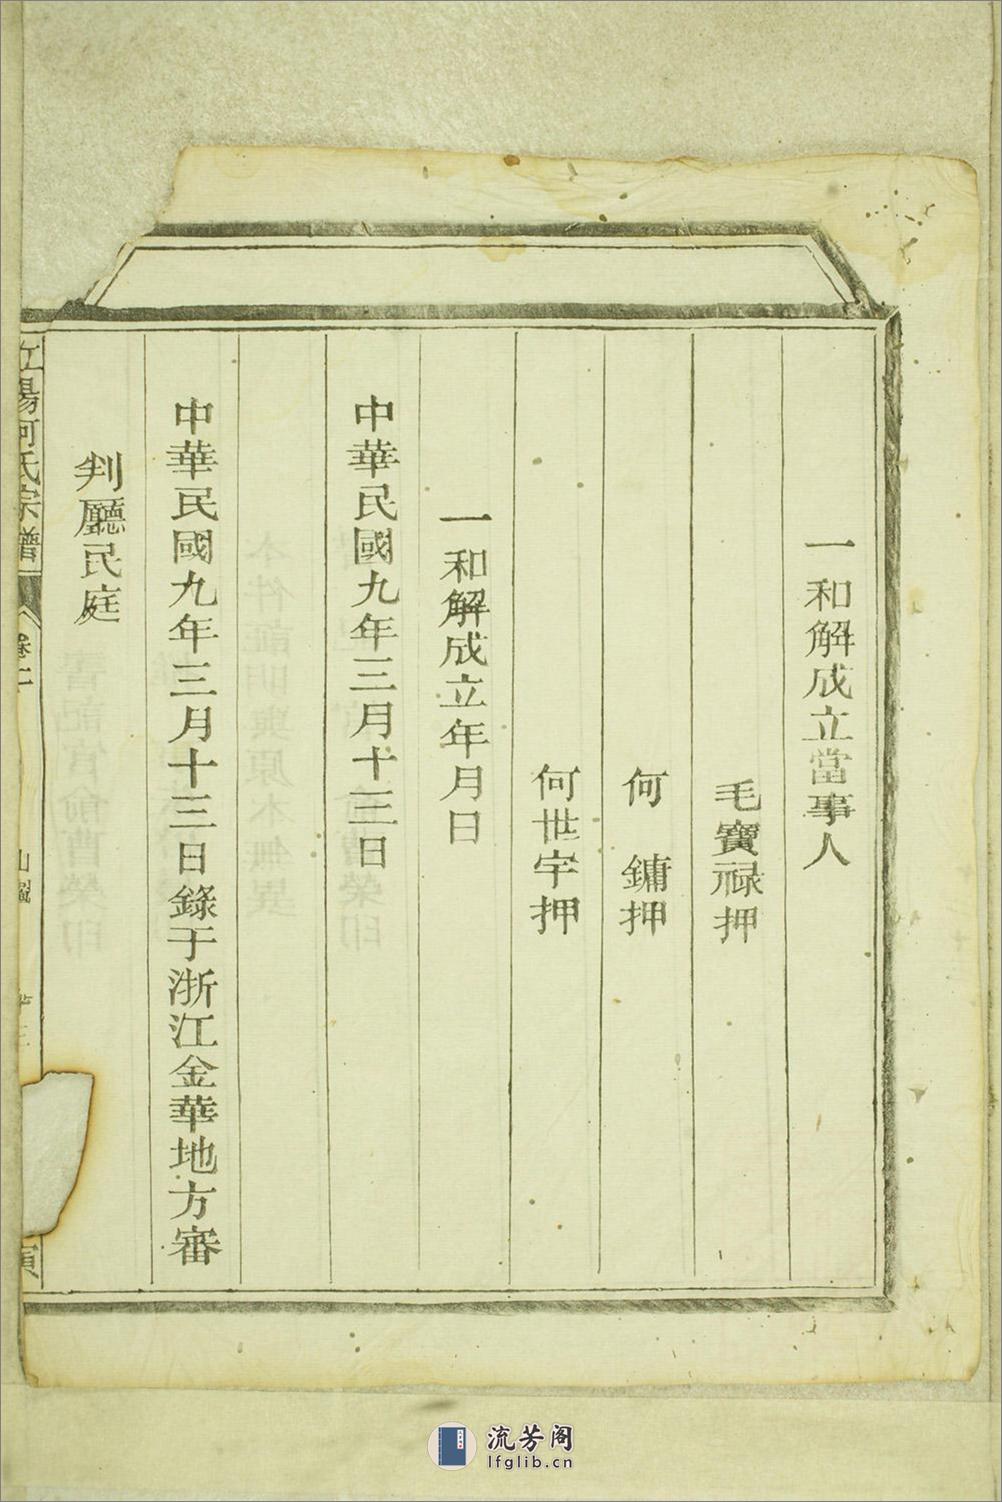 一和解成立當事人
毛寶祿押
何　鏞押
何世宇押
一和解成立年月日
中華民國九年三月十三日
中華民國九年三月十三日錄于浙江金華地方審
判廳民庭
江陽何氏宗譜
流芳阁
lfglib.cn